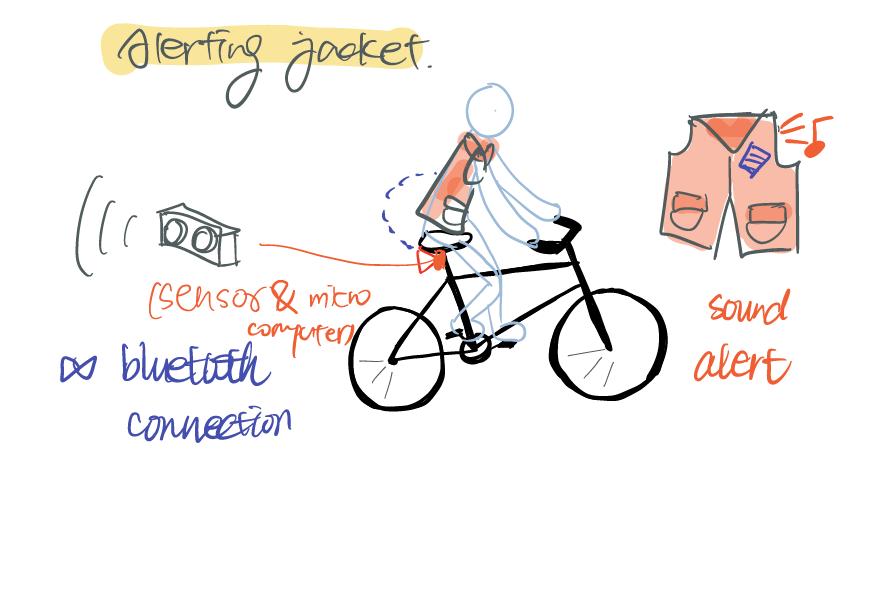 Alerting jacket.
(sensor & micro
computer)
bluetooth
connection
sound
alert